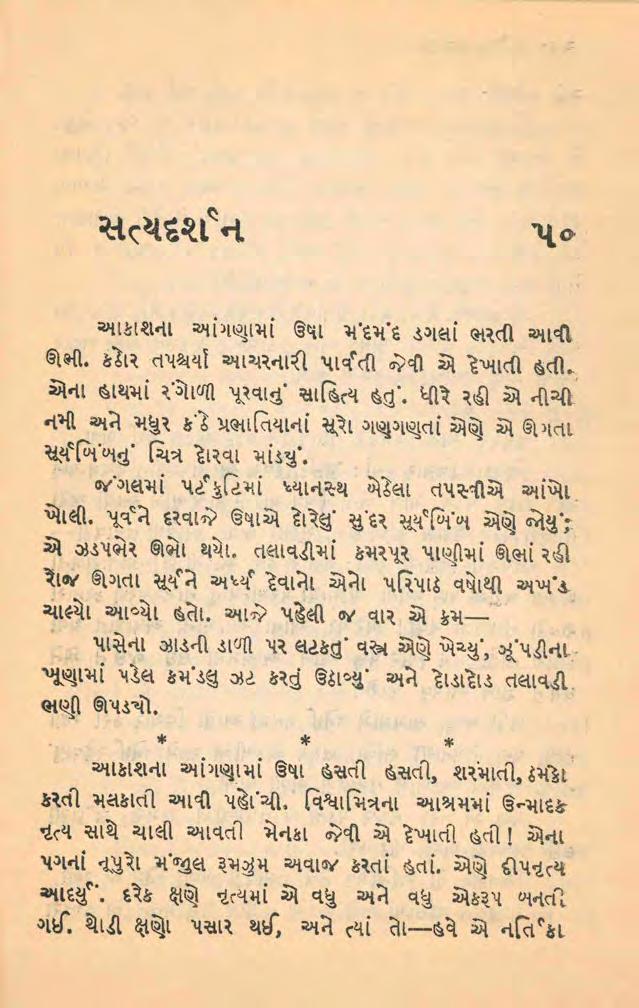 સત્યદર્શન ૫૦
આકાશના આંગણામાં ઉષા મંદમંદ ડગલાં ભરતી આવી
ઊભી. કઠોર તપશ્ચર્યા આચરનારી પાર્વતી જેવી એ દેખાતી હતી.
એના હાથમાં રંગોળી પૂરવાનું સાહિત્ય હતું. ધીરે રહી એ નીચી
નમી અને મધુર કંઠે પ્રભાતિયાનાં સૂરો ગણગણતાં એણે એ ઊગતા
સૂર્યબિંબનું ચિત્ર દોરવા માંડ્યું.
જંગલમાં પર્ટકુટિમાં ધ્યાનસ્થ બેઠેલા તપસ્વીએ આંખો
ખોલી. પૂર્વને દરવાજે ઉષાએ દોરેલું સુંદર સૂર્યબિંબ એણે જોયું;
એ ઝડપભેર ઊભો થયો. તલાવડીમાં કમરપૂર પાણીમાં ઊભાં રહી
રોજ ઊગતા સૂર્યને અર્ધ્ય દેવાનો એનો પરિપાઠ વર્ષોથી અખંડ
ચાલ્યો આવ્યો હતો. આજે પહેલી જ વાર એ ક્રમ—
પાસેના ઝાડની ડાળી પર લટકતું વસ્ત્ર એણે ખેચ્યું, ઝૂંપડીના
ખૂણામાં પડેલ કમંડલુ ઝટ કરતું ઉઠાવ્યું અને દોડાદોડ તલાવડી
ભણી ઊપડ્યો.
* * *
આકાશના આંગણામાં ઉષા હસતી હસતી, શરમાતી, ઠમકો
કરતી મલકાતી આવી પહોંચી. વિશ્વામિત્રના આશ્રમમાં ઉન્માદક
નૃત્ય સાથે ચાલી આવતી મેનકા જેવી એ દેખાતી હતી! એના
પગનાં નૂપુરો મંજુલ રૂમઝુમ અવાજ કરતાં હતાં. એણે દીપનૃત્ય
આદર્યું. દરેક ક્ષણે નૃત્યમાં એ વધુ અને વધુ એકરૂપ બનતી
ગઈ. થોડી ક્ષણો પસાર થઈ, અને ત્યાં તો—હવે એ નર્તિકા